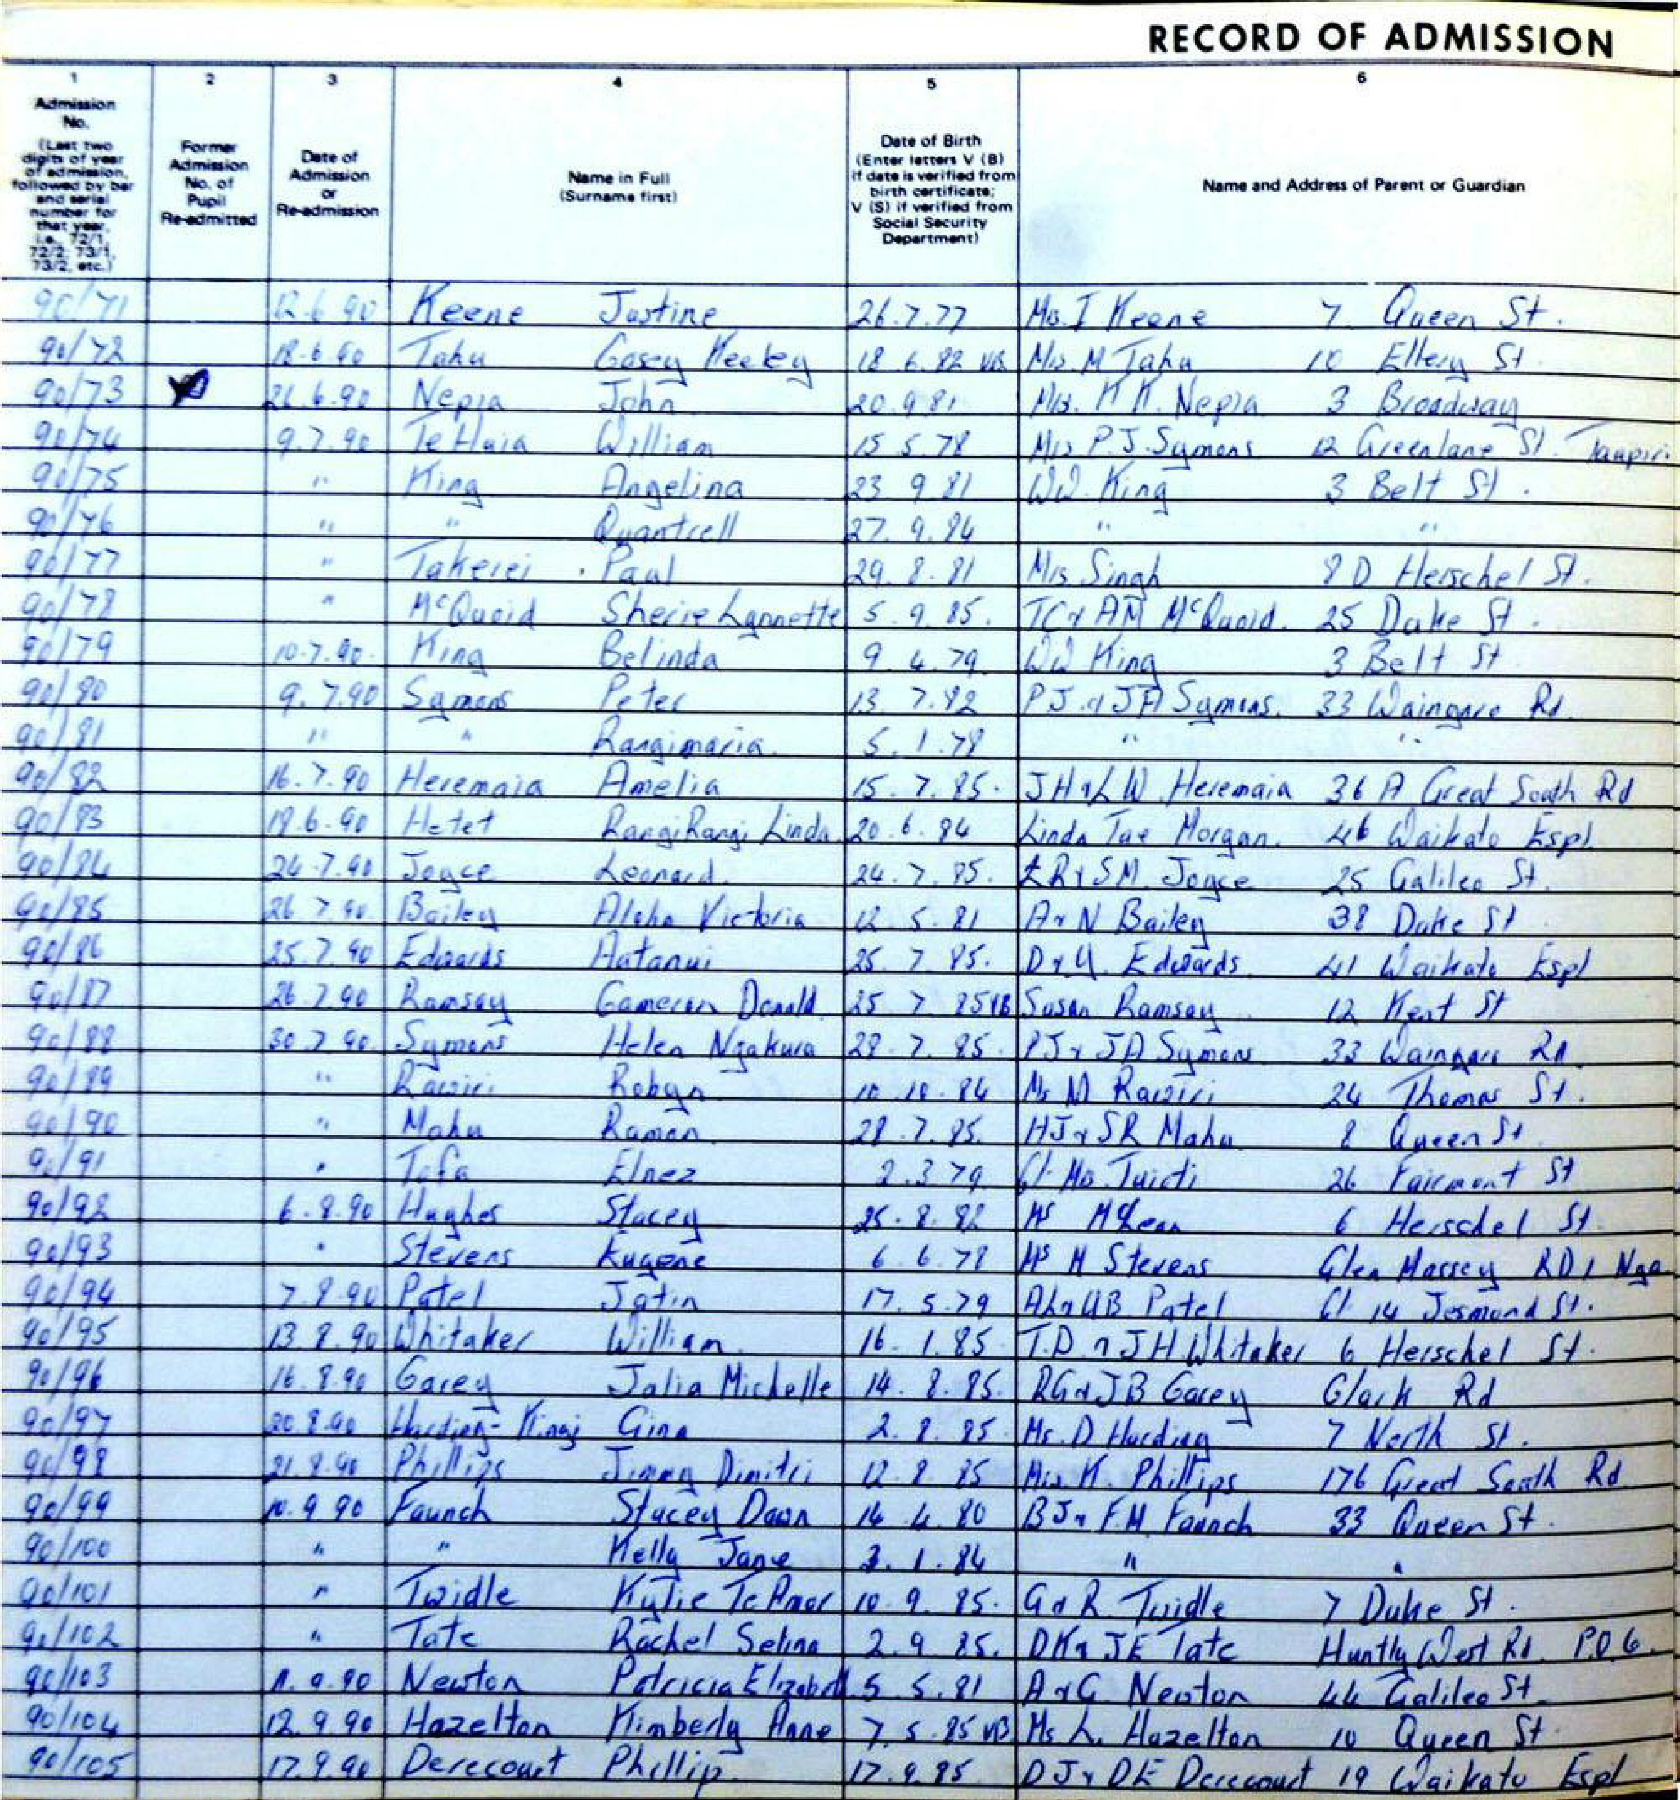 RECORD OF ADMISSION
1 2 3 4 5 6
Admission No. (Last two digits of year of admission, followed by bar and serial number for that year, i.e., 72/1, 72/2, 73/1, 73/2, etc.)
Former Admission No. of Pupil Re-admitted
Date of Admission or Re-admission
Name in Full (Surname first)
Date of Birth (Enter letters V (B) if date is verified from birth certificate; V (S) if verified from Social Security Department)
Name and Address of Parent or Guardian
90/71 12.6.90 Keene Justine 26.7.77 Ms. I Keene 7 Queen St.
90/72 18.6.90 Tahu Casey Keeley 18 6.82 VB Mrs. M Tahu 10 Ellery St.
90/73 21.6.90 Nepia John 20.9.81 Mrs. K K. Nepia 3 Broadway
90/74 9.7.90 Te Huia William 15 5.78 Mrs P.J. Symons 12 Greenlane St. Taupiri
90/75 " King Angelina 23 9 81 WW. King 3 Belt St.
90/76 " " Quantrell 27. 9.84 " "
90/77 " Takerei Paul 29. 8.81 Mrs Singh 8 D Herschel St.
90/78 " McQuoid Sherie Lynnette 5. 9.85. TC & AM McQuoid. 25 Duke St.
90/79 10.7.90. King Belinda 9. 4.79. WW King 3 Belt St
90/80 9.7.90 Symons Peter 13. 7.82 PJ. & JA Symons. 33 Waingaro Rd.
90/81 " " Rangimaria. 5. 1.78 " "
90/82 16.7.90 Heremaia Amelia 15. 7. 85. JH & L W. Heremaia 36 A Great South Rd
90/83 18.6.90 Hetet RangiRangi Linda 20. 6. 84 Linda Tae Morgan. 46 Waikato Espl.
90/84 24.7.90 Joyce Leonard. 24. 7. 85. LR & SM. Joyce 25 Galileo St.
90/85 26 7.90. Bailey Aloha Victoria 12. 5. 81 A & N Bailey 38 Duke St
90/86 25.7.90 Edwards Aatanui 25. 7. 85. D & U. Edwards. 41 Waikato Espl
90/87 26.7.90 Ramsay Cameron Donald. 25. 7 85 VB Susan Ramsay 12 Kent St
90/88 30.7.90. Symons Helen Ngakura 28. 7. 85. PJ & JA Symons 33 Waingaro Rd.
90/89 " Rawiri Robyn 10. 10. 84 Ms M Rawiri 24 Thomas St.
90/90 " Mahu Ramon. 28. 7. 85. HJ & SR Mahu 8 Queen St
90/91 " Tofa Elnez 2. 3 79. C/- Ms. 26 Fairmont St
90/92 6.8.90 Hughes Stacey 25. 8. 82 Ms McLean 6 Herschel St.
90/93 " Stevens Eugene 6. 6. 78 Ms M Stevens Glen Massey RD1 Nga
90/94 7.8.90 Patel Jatin 17. 5.79 AL & UB Patel C/- 14 Jesmond St.
90/95 13.8.90 Whitaker William. 16. 1.85. T.D & JH Whitaker 6 Herschel St.
90/96 16.8.90 Carey Julia Michelle 14. 8. 85. RG & JB Carey Clark Rd
90/97 20.8.90 Harding-Kingi Gina 2. 8. 85. Ms. D Harding 7 North St.
90/98 21.8.90 Phillips Jimmy Dimitri 12. 8 85 Mrs. K. Phillips 176 Great South Rd
90/99 10.9 90 Faunch Stacey Dawn 14 4. 80 BJ & F.M. Faunch 33 Queen St.
90/100 " " Kelly Jane 3. 1. 84 " "
90/101 " Twidle Kylie 10. 9. 85. G & R. Twidle 7 Duke St.
90/102 " Tate Rachel Selina 2. 9 85. DK & JE Tate Huntly West Rd. P.O.
90/103 11. 9.90 Newton Patricia Elizabeth 5 5. 81 A & C. Newton 44 Galileo St.
90/104 12. 9.90 Hazelton Kimberly Anne 7. 5. 85 VB Ms L. Hazelton 10 Queen St.
90/105 17.9.90 Derecourt Phillip. 17. 9.85 DJ & DE Derecourt 19 Waikato Espl